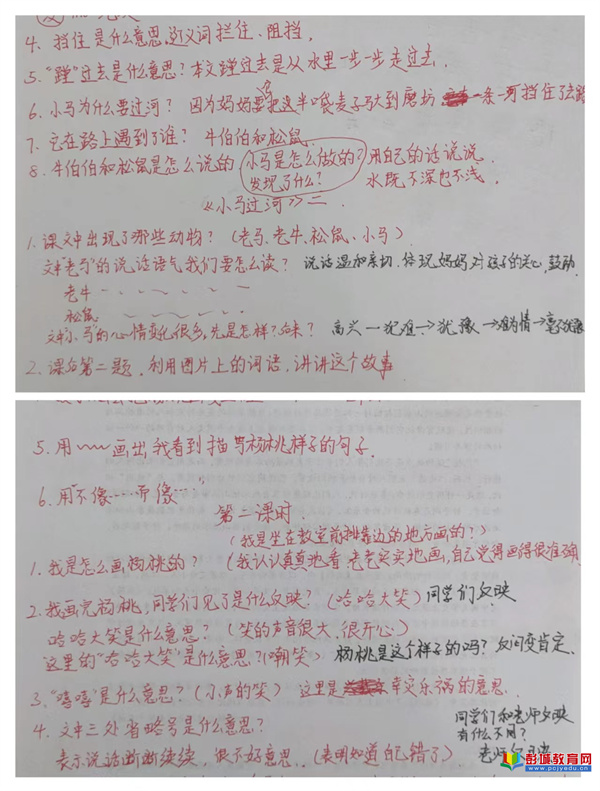 4、挡住是什么意思、近义词拦住、阻挡,
5、"蹚"过去是什么意思?本文蹚过去是从水里一步一步走过去.
6、小马为什么要过河?因为妈妈要把这半口袋麦子马大到磨坊 一条一河挡住了去路
7、它在路上遇到了谁?牛伯伯和松鼠
8、牛伯伯和松鼠是怎么说的 小马是怎么做的?用自己的话说说.
发现了什么? 水既不深也不浅.
《小马过河》二
1、课文中出现了哪些动物?(老马、老牛、松鼠、小马)
文中"老马"的说话语气我们要怎么读?说话温和亲切.体现妈妈对孩子的关心,鼓励
老牛
松鼠
文中"小马"的心情变化很多,先是怎样?后来?高兴一犯难→犹豫→难为情→毫不犹豫
2、课后第二题,利用图片上的词语,讲讲这个故事
5、用 画出,我看到描写杨桃样子的句子.
6、用"不像……而像……"
第二课时.
(我是坐在教室前排靠边的地方画的?)
1、我是怎么画杨桃的?(我认认真真地看 老老实实地画,自己觉得画得很准确
2、我画完杨桃,同学们见了是什么反映?(哈哈大笑)同学们反映
哈哈大笑是什么意思?(笑的声音很大、很开心)
这里的"哈哈大笑"是什么意思?(嘲笑)杨桃是这个样子的吗?反问变肯定.
3、"嘻嘻"是什么意思?(小声的笑)这里是 幸灾乐祸的意思.
4、文中三处省略号是什么意思?
同学们和老师反映
有什么不同?
表示说话断断续续,很不好意思.(表明知道自己错了)
老师
彭城教育网
www.pcjyedu.cn